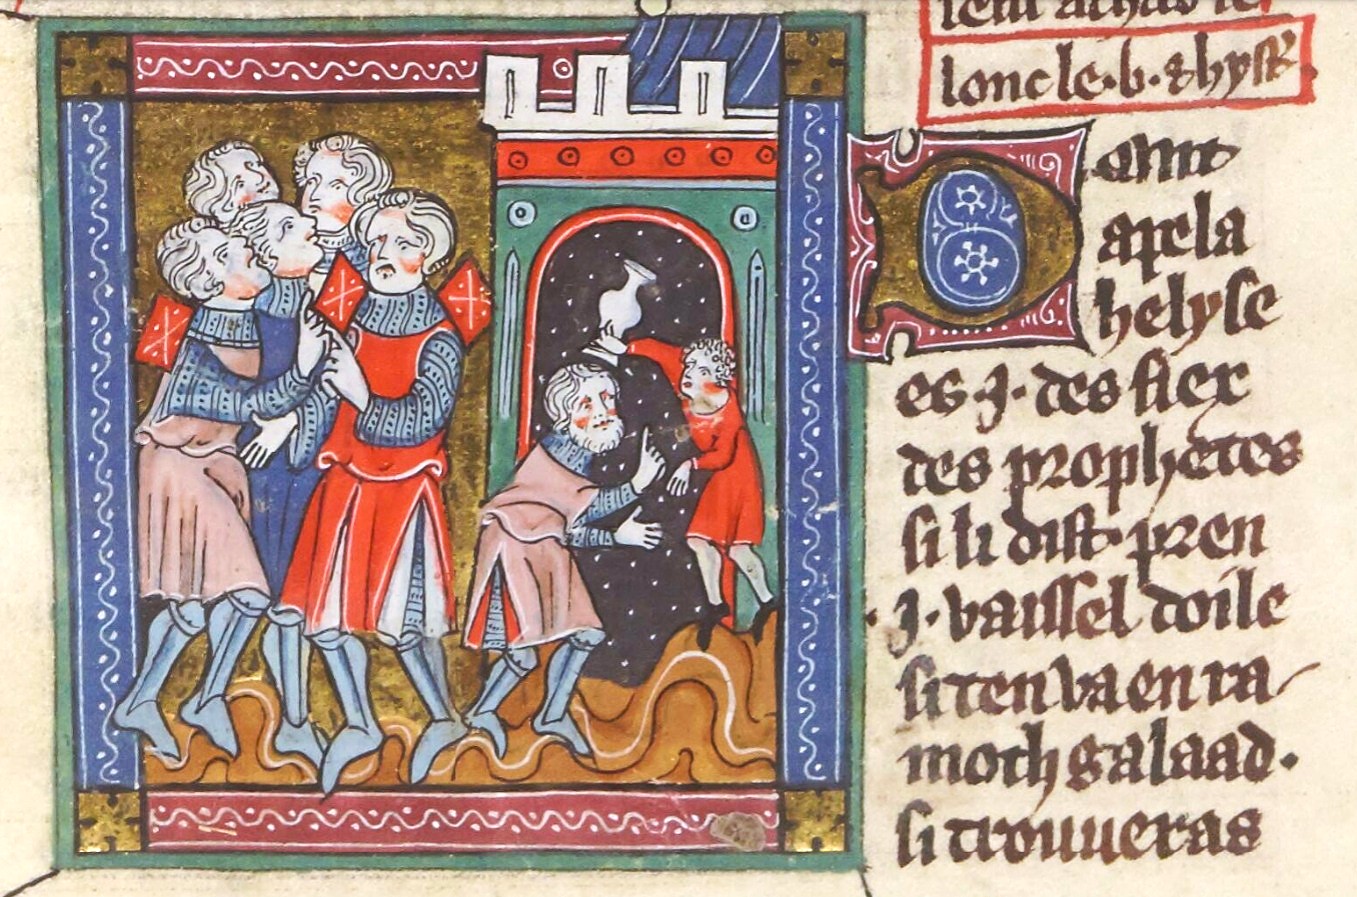 lonc le·b·⁊ hyst'.
Dont
apela
helyse
es ·j· des fiex
des prophetes
si li dist pren
·j· vaissel doile
si ten va en ra
moth galaad·
si trouueras